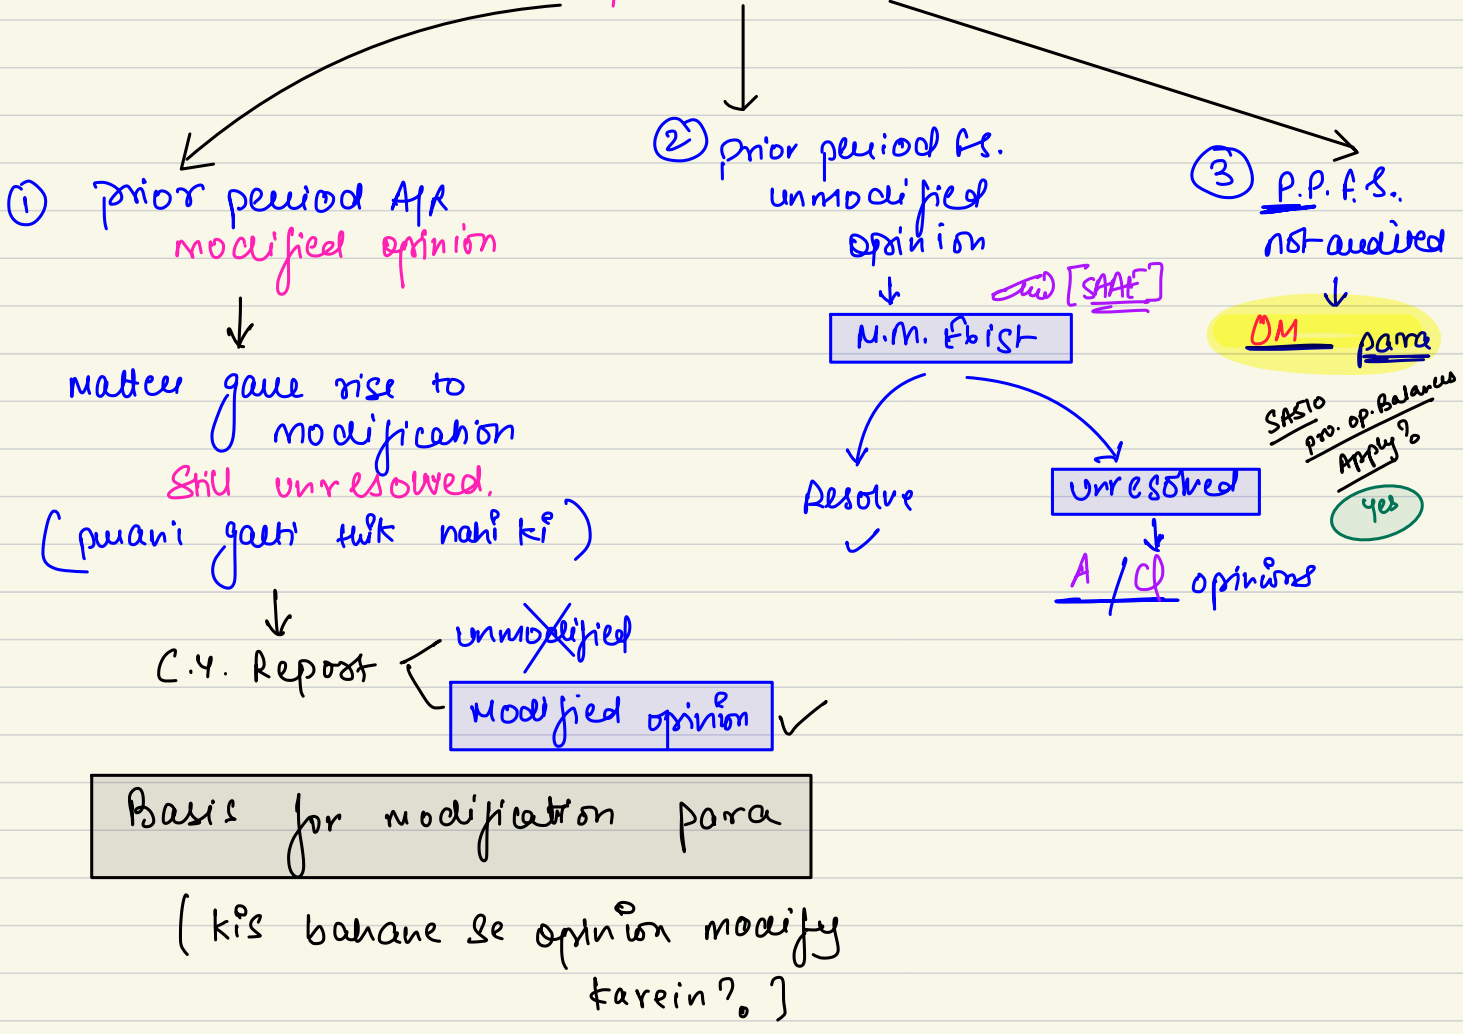 ① prior period A/R
modified opinion
Matter gave rise to
modification
Still unresolved.
(purani galti thik nahi ki)
C.Y. Report
unmodified
Modified opinion ✓
Basis for modification para
(kis bahane se opinion modify
karein?)
② prior period fs.
unmodified
opinion
[SAAE]
M.M. Exist
Resolve
✓
unresolved
A / Q opinions
③ P.P.F.S.
not audited
OM para
SA510
pro. op. Balances
Apply?
yes